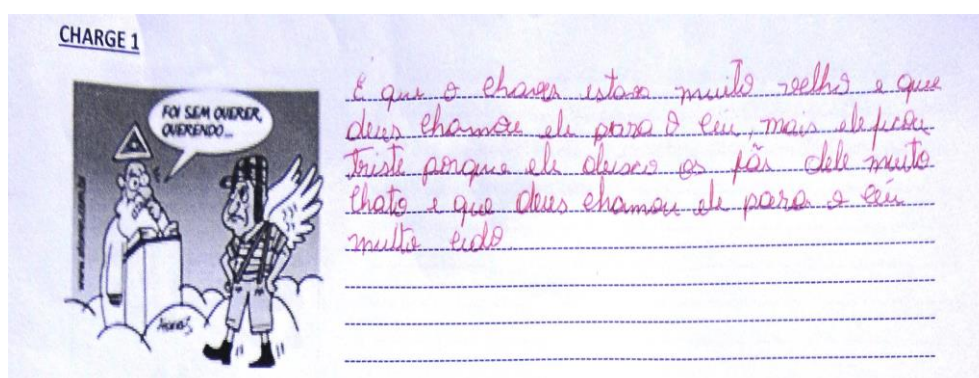 CHARGE 1
FOI SEM QUERER,
QUERENDO...
É que o chaves estava muito velho e que
deus chamou ele para o céu, mais ele ficou
triste porque ele deixo os fãs dele muito
chato e que deus chamou ele para o céu
muito cedo